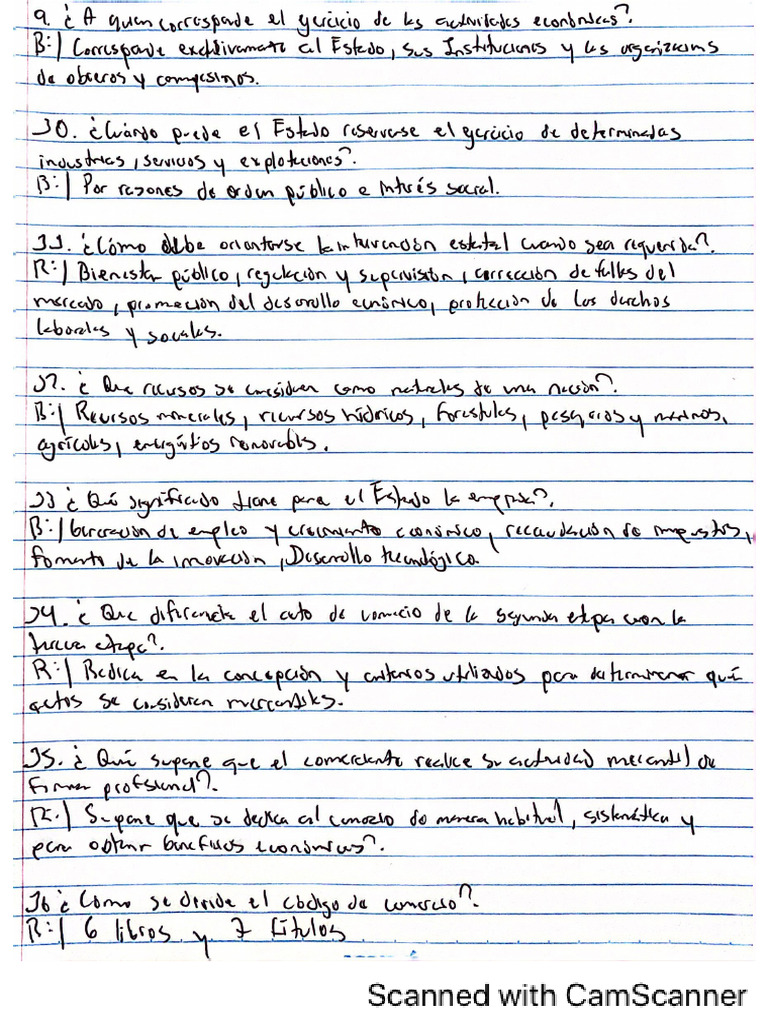 9. ¿A quien corresponde el ejercicio de las actividades económicas?.
R:| Corresponde exclusivamente al Estado, sus Instituciones y las organizaciones
de obreros y campesinos.
10. ¿Cuándo puede el Estado reservarse el ejercicio de determinadas
industrias, servicios y explotaciones?.
R:| Por razones de orden público e interés social.
11. ¿Cómo debe orientarse la intervención estatal cuando sea requerida?.
R:| Bienestar público, regulación y supervisión, corrección de fallas del
mercado, promoción del desarrollo económico, protección de los derechos
laborales y sociales.
12. ¿Que recursos se consideran como naturales de una nación?.
R:| Recursos minerales, recursos hídricos, forestales, pesqueros y marinos,
agrícolas, energéticos renovables.
13 ¿Qué significado tiene para el Estado la empresa?.
R:| Generación de empleo y crecimiento económico, recaudación de impuestos,
fomento de la innovación, Desarrollo tecnológico.
14. ¿Que diferencia el acto de comercio de la segunda etapa con la
tercera etapa?.
R:| Radica en la concepción y criterios utilizados para determinar qué
actos se consideran mercantiles.
15. ¿Qué supone que el comerciante realice su actividad mercantil de
forma profesional?.
R:| Supone que se dedica al comercio de manera habitual, sistemática y
para obtener beneficios económicos?.
16 ¿Como se divide el código de comercio?.
R:| 6 libros y 7 títulos
Scanned with CamScanner